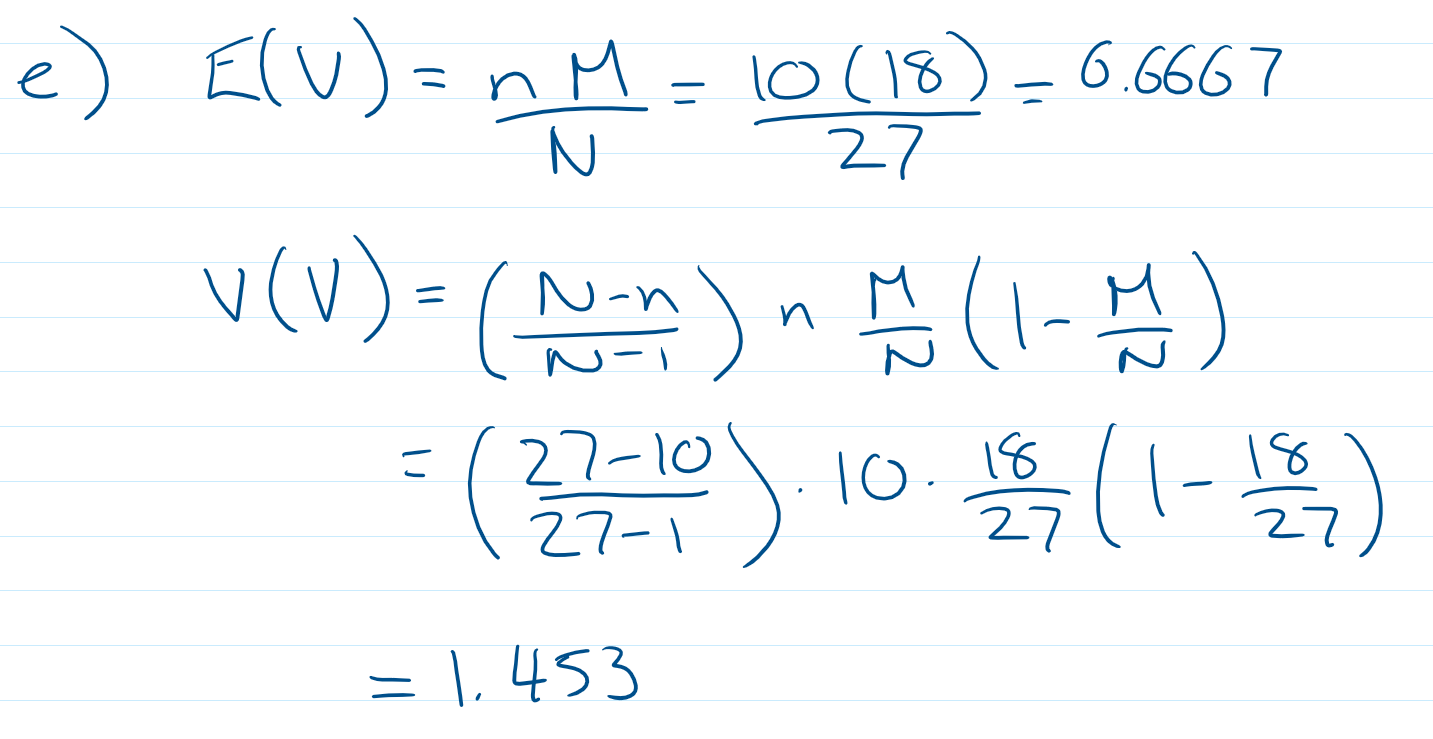 e) E(V) = nM/N = 10(18)/27 = 6.6667
V(V) = ((N-n)/(N-1)) n M/N (1 - M/N)
= ((27-10)/(27-1)) · 10 · 18/27 (1 - 18/27)
= 1.453